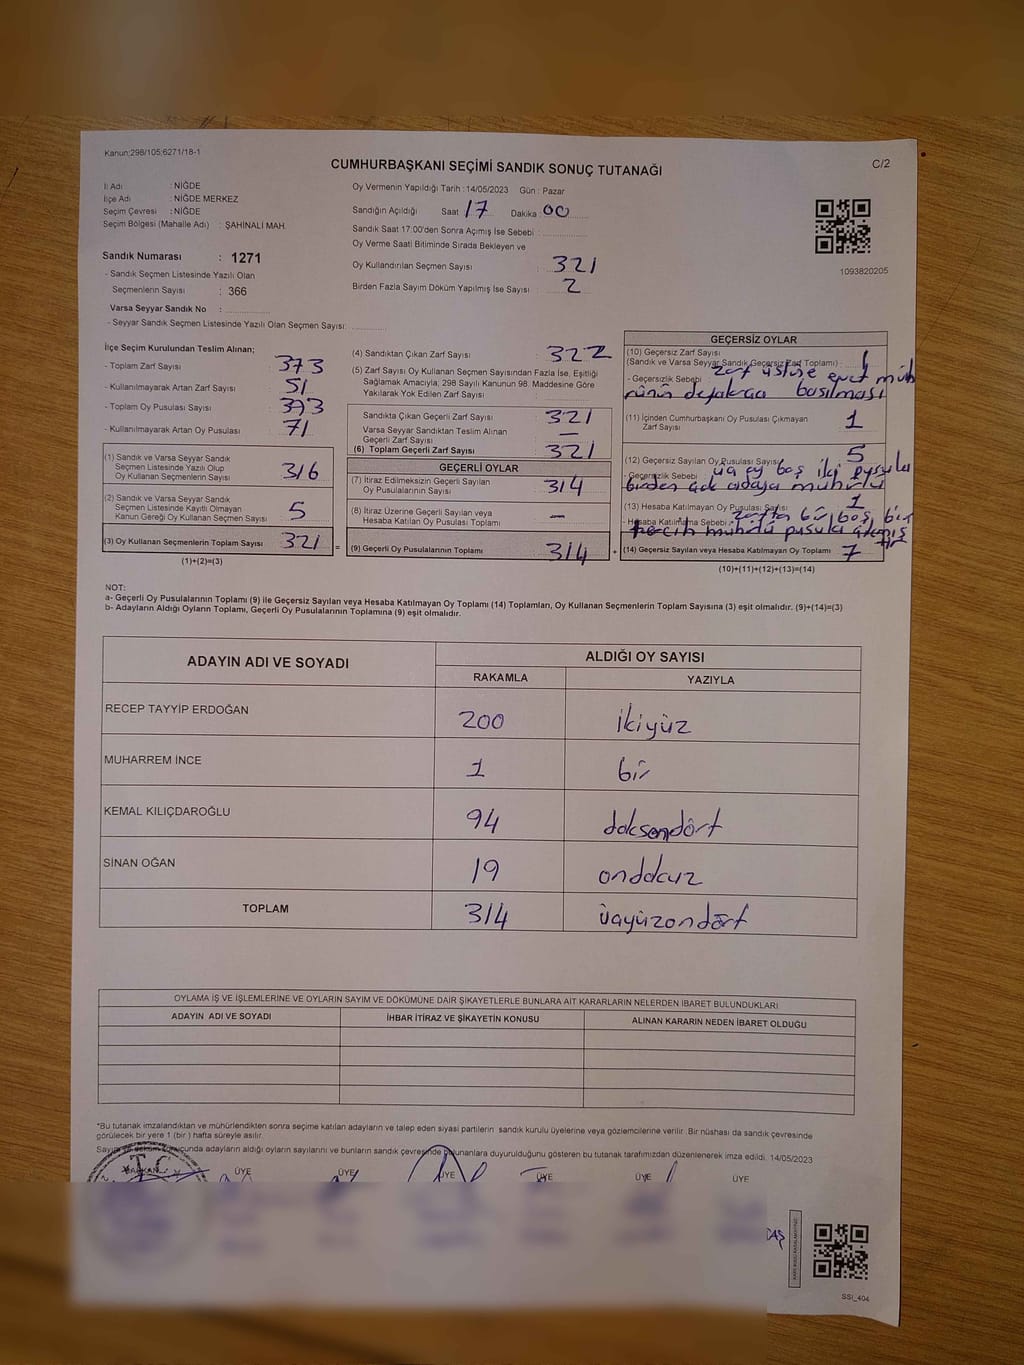 Kanun:298/105;6271/18-1
CUMHURBAŞKANI SEÇİMİ SANDIK SONUÇ TUTANAĞI
C/2
İl Adı : NİĞDE
İlçe Adı : NİĞDE MERKEZ
Seçim Çevresi : NİĞDE
Seçim Bölgesi (Mahalle Adı) : ŞAHİNALİ MAH.
Sandık Numarası : 1271
- Sandık Seçmen Listesinde Yazılı Olan
Seçmenlerin Sayısı : 366
Varsa Seyyar Sandık No :
- Seyyar Sandık Seçmen Listesinde Yazılı Olan Seçmen Sayısı:
Oy Vermenin Yapıldığı Tarih : 14/05/2023 Gün : Pazar
Sandığın Açıldığı Saat 17 Dakika : 00
Sandık Saat 17:00'den Sonra Açımış İse Sebebi :
Oy Verme Saati Bitiminde Sırada Bekleyen ve
Oy Kullandırılan Seçmen Sayısı : 321
Birden Fazla Sayım Döküm Yapılmış İse Sayısı : 2
1093820205
İlçe Seçim Kurulundan Teslim Alınan;
- Toplam Zarf Sayısı 373
- Kullanılmayarak Artan Zarf Sayısı : 51
- Toplam Oy Pusulası Sayısı : 373
- Kullanılmayarak Artan Oy Pusulası : 71
(1) Sandık ve Varsa Seyyar Sandık
Seçmen Listesinde Yazılı Olup
Oy Kullanan Seçmenlerin Sayısı 316
(2) Sandık ve Varsa Seyyar Sandık
Seçmen Listesinde Kayıtlı Olmayan
Kanun Gereği Oy Kullanan Seçmen Sayısı 5
(3) Oy Kullanan Seçmenlerin Toplam Sayısı 321
(1)+(2)=(3)
=
(4) Sandıktan Çıkan Zarf Sayısı : 322
(5) Zarf Sayısı Oy Kullanan Seçmen Sayısından Fazla İse, Eşitliği
Sağlamak Amacıyla, 298 Sayılı Kanunun 98. Maddesine Göre
Yakılarak Yok Edilen Zarf Sayısı :
Sandıkta Çıkan Geçerli Zarf Sayısı 321
Varsa Seyyar Sandıktan Teslim Alınan
Geçerli Zarf Sayısı —
(6) Toplam Geçerli Zarf Sayısı 321
GEÇERLİ OYLAR
(7) İtiraz Edilmeksizin Geçerli Sayılan
Oy Pusulalarının Sayısı 314
(8) İtiraz Üzerine Geçerli Sayılan veya
Hesaba Katılan Oy Pusulası Toplamı —
(9) Geçerli Oy Pusulalarının Toplamı 314
+
GEÇERSİZ OYLAR
(10) Geçersiz Zarf Sayısı
(Sandık ve Varsa Seyyar Sandık Geçersiz Zarf Toplamı) : 1
- Geçersizlik Sebebi zarf üstüne evet müh
rünün defalarca basılması
(11) İçinden Cumhurbaşkanı Oy Pusulası Çıkmayan
Zarf Sayısı 1
(12) Geçersiz Sayılan Oy Pusulası Sayısı 5
- Geçersizlik Sebebi üç oy boş iki pusula
birden çok adaya mühürlü
(13) Hesaba Katılmayan Oy Pusulası Sayısı 1
- Hesaba Katılmama Sebebi zarftan bir boş, bir
tercih mühürlü pusula
(14) Geçersiz Sayılan veya Hesaba Katılmayan Oy Toplamı 7
(10)+(11)+(12)+(13)=(14)
NOT:
a- Geçerli Oy Pusulalarının Toplamı (9) ile Geçersiz Sayılan veya Hesaba Katılmayan Oy Toplamı (14) Toplamları, Oy Kullanan Seçmenlerin Toplam Sayısına (3) eşit olmalıdır. (9)+(14)=(3)
b- Adayların Aldığı Oyların Toplamı, Geçerli Oy Pusulalarının Toplamına (9) eşit olmalıdır.
ADAYIN ADI VE SOYADI
ALDIĞI OY SAYISI
RAKAMLA YAZIYLA
RECEP TAYYİP ERDOĞAN 200 ikiyüz
MUHARREM İNCE 1 bir
KEMAL KILIÇDAROĞLU 94 doksandört
SİNAN OĞAN 19 ondokuz
TOPLAM 314 üçyüzondört
OYLAMA İŞ VE İŞLEMLERİNE VE OYLARIN SAYIM VE DÖKÜMÜNE DAİR ŞİKAYETLERLE BUNLARA AİT KARARLARIN NELERDEN İBARET BULUNDUKLARI
ADAYIN ADI VE SOYADI İHBAR İTİRAZ VE ŞİKAYETİN KONUSU ALINAN KARARIN NEDEN İBARET OLDUĞU
*Bu tutanak imzalandıktan ve mühürlendikten sonra seçime katılan adayların ve talep eden siyasi partilerin sandık kurulu üyelerine veya gözlemcilerine verilir. Bir nüshası da sandık çevresinde
görülecek bir yere 1 (bir ) hafta süreyle asılır.
Sayım ve döküm sonuçunda adayların aldığı oyların sayılarını ve bunların sandık çevresinde bulunanlara duyurulduğunu gösteren bu tutanak tarafımızdan düzenlenerek imza edildi. 14/05/2023
BAŞKAN ÜYE ÜYE ÜYE ÜYE ÜYE ÜYE
SSİ_404